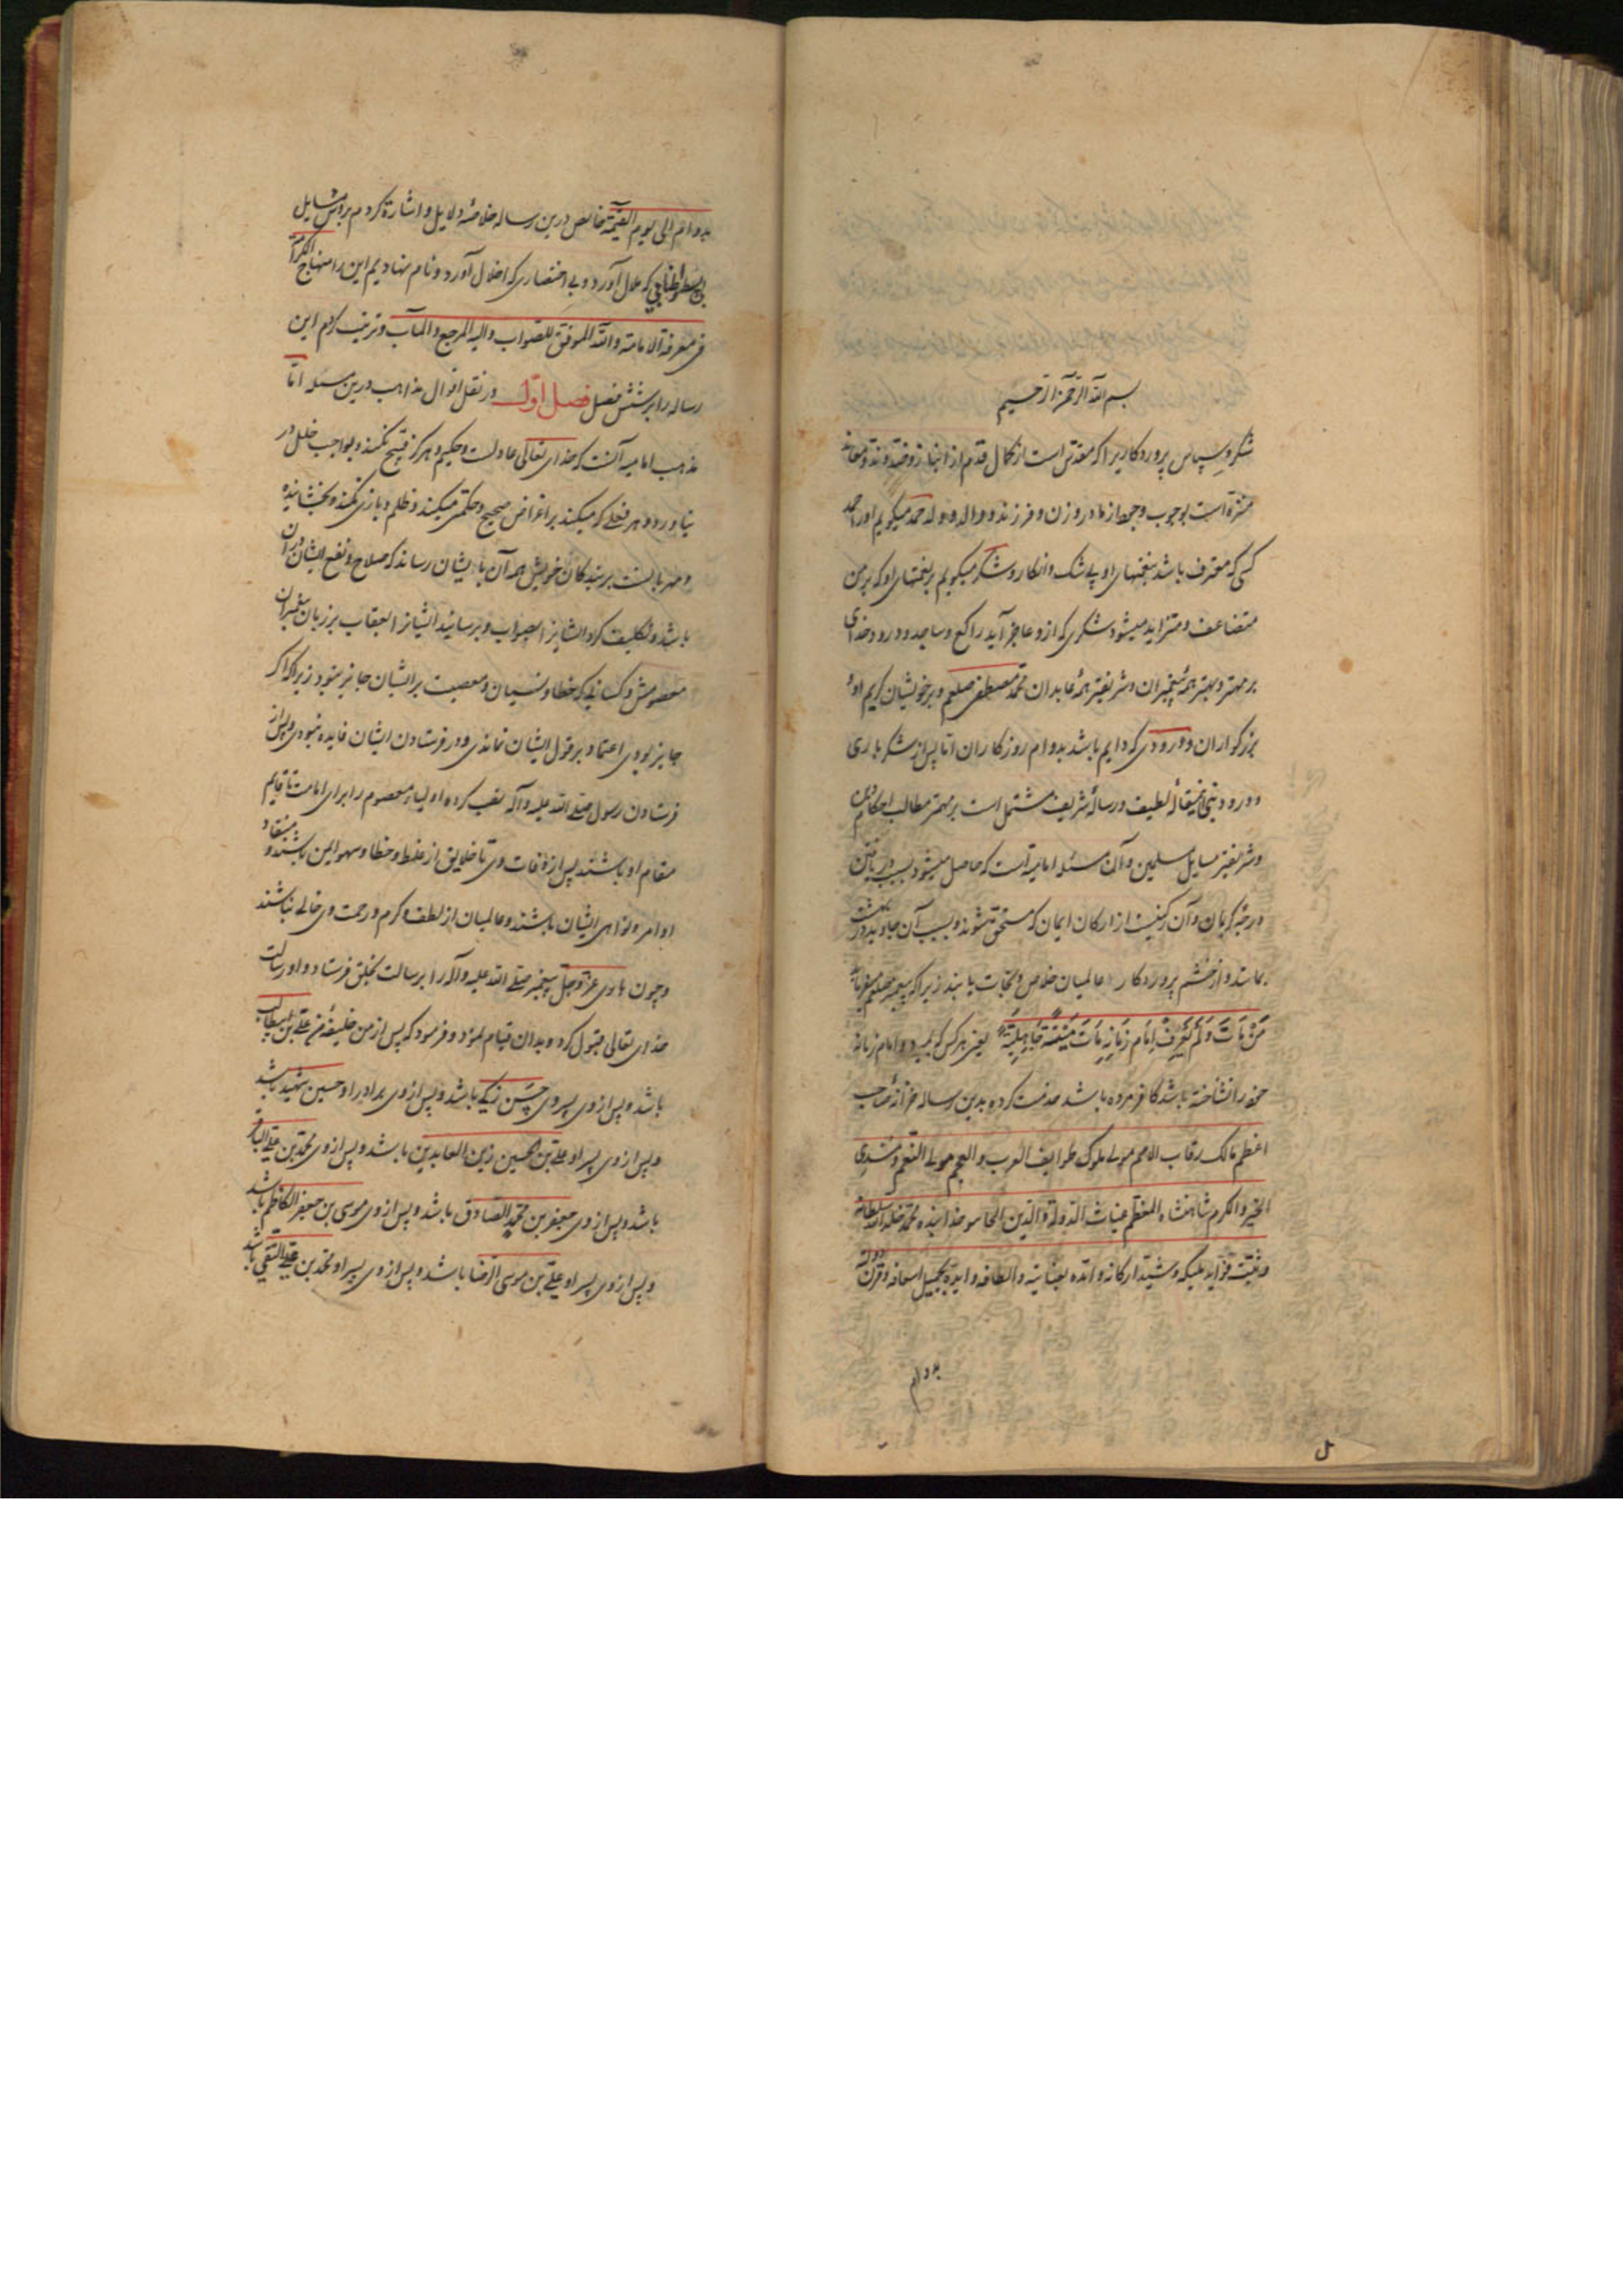 بسم الله الرحمن الرحیم
شکر و سپاس پروردکاریرا که مقدس است از کمال قدم از انباز و ضد و ند و معاند
منزه است بوجوب وجود از مادر و زن و فرزند و والد و ولد حمد میکویم اورا حمد
کسی که معترف باشد بنعمتهای او بی شک و انکار و شکر میکویم بر نعمتهای او که بر من
متضاعف و متزاید میشود شکری که ازو عاجز آید راکع و ساجد و درود خدای
بر مهتر و بهتر همهٔ پیغمبران و شریفتر همهٔ عابدان محمد مصطفی صلعم و بر خویشان کریم او و
بزرکواران و درودی که دایم باشد بدوام روزکاران اما پس از شکر باری
و درود نبی این مقالهٔ لطیف و رسالهٔ شریف مشتمل است بر مهمتر مطالب احکام دین
و شریفتر مسایل مسلمین و آن مسئله امامیه است که حاصل میشود بسبب دریافتن
درجهٔ کریمان و آن رکنیست از ارکان ایمان که مستحق شوند و بسبب آن جاوید در بهشت
بمانند و از خشم پروردکار عالمیان خلاص و نجات یابند زیرا که پیغمبر صلعم میفرماید
مَن مَاتَ وَلَم یَعرِف اِمَام زَمَانِهِ مَاتَ مَیتَةً جَاهِلِیَّةً یعنی هر کس که بمیرد و امام زمانه
خود را نشناخته باشد کافر مرده باشد خدمت کرده بدین رساله خزانهٔ صاحب
اعظم مالک رقاب الامم مولی ملوک طوایف العرب و العجم مولی النعم و مسدی
الخیر و الکرم شاهنشاه المعظم غیاث الدولة و الدین الجاسو خدابنده محمد خلد الله سلطانه
و ثبت قواعد ملکه و شید ارکانه و امده بعنایته و الطافه و ایده بجمیل اسعافه و قرن دولته
بدوام
بدوام الی یوم القیمة خالص درین رساله خلاصهٔ دلایل و اشارة کردم بر رؤس مسایل
بی بسط و اطنابی که ملال آورد و بی اختصاری که اخلال آورد و نام نهادیم این را منهاج الکرامة
فی معرفة الامامة و الله الموفق للصواب و الیه المرجع و المآب و ترتیب کردم این
رساله را بر شش فصل فصل اول در نقل اقوال مذاهب درین مسئله اما
مذهب امامیه آنست که خدای تعالی عادلست و حکیم و هرکز قبیح نکند و بواجب خلل در
نیاورد و هر فعلی که میکند بر اغراض صحیح و حکمتی میکند و ظلم و بازی نکند و بخشاینده
و مهربانست بر بندکان خویش همه آن بایشان رساند که صلاح و نفع ایشان در آن
باشد و تکلیف کرد ایشانرا
معصومش و کسانی که خطا و نسیان و معصیت بر ایشان جایز نبود زیرا که اکر
جایز بودی اعتماد بر قول ایشان نماندی و در فرستادن ایشان فایده نبودی و پس از
فرستادن رسول صلی الله علیه و آله نصب کرده اولیاء معصوم را برای امامت تا قایم
مقام او باشند پس از وفات وی تا خلایق از غلط و خطا و سهو ایمن باشند و منقاد
اوامر و نواهی ایشان باشند و عالمیان از لطف و کرم و رحمت وی خالی نباشند
و چون باری عز و جل پیغمبر صلی الله علیه و آله را برسالت بخلق فرستاد و او رسالت
خدای تعالی قبول کرد و بدان قیام نمود و فرمود که پس از من خلیفهٔ من علی بن ابیطالب
باشد و پس از وی پسر وی حسن زکی باشد و پس از وی برادر او حسین شهید باشد
و پس از وی پسر او علی بن الحسین زین العابدین باشد و پس از وی محمد بن علی الباقر
باشد و پس از وی جعفر بن محمد الصادق باشد و پس از وی موسی بن جعفر الکاظم باشد
و پس از وی پسر او علی بن موسی الرضا باشد و پس از وی پسر او محمد بن علی التقی باشد